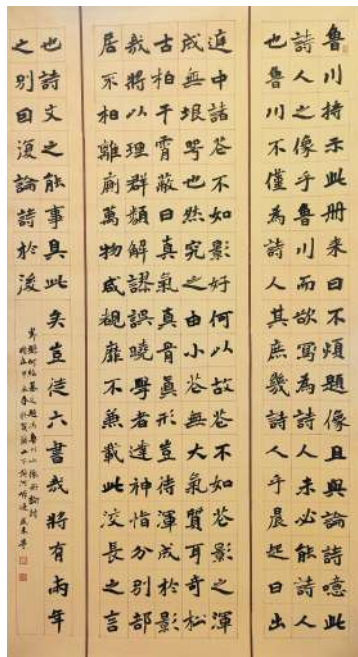 魯川持示此册来曰不煩題像且與論詩噫此
詩人之像乎魯川而欲寫為詩人未必能詩人
也魯川不僅為詩人其庶幾詩人乎晨起日出
庭中諸花不如影好何以故花不如花影之渾
成無垠咢也然究之由小花無大氣質耳奇松
古柏干霄蔽日真氣真骨真形豈待渾成於影
哉將以理群類解謬誤曉學者達神恉分別部
居不相雜廁萬物咸覩靡不兼載此洨長之言
也詩文之能事具此矣豈徒六書哉將有兩年
之別回復論詩於後
何紹基題馮魯川小像册論詩